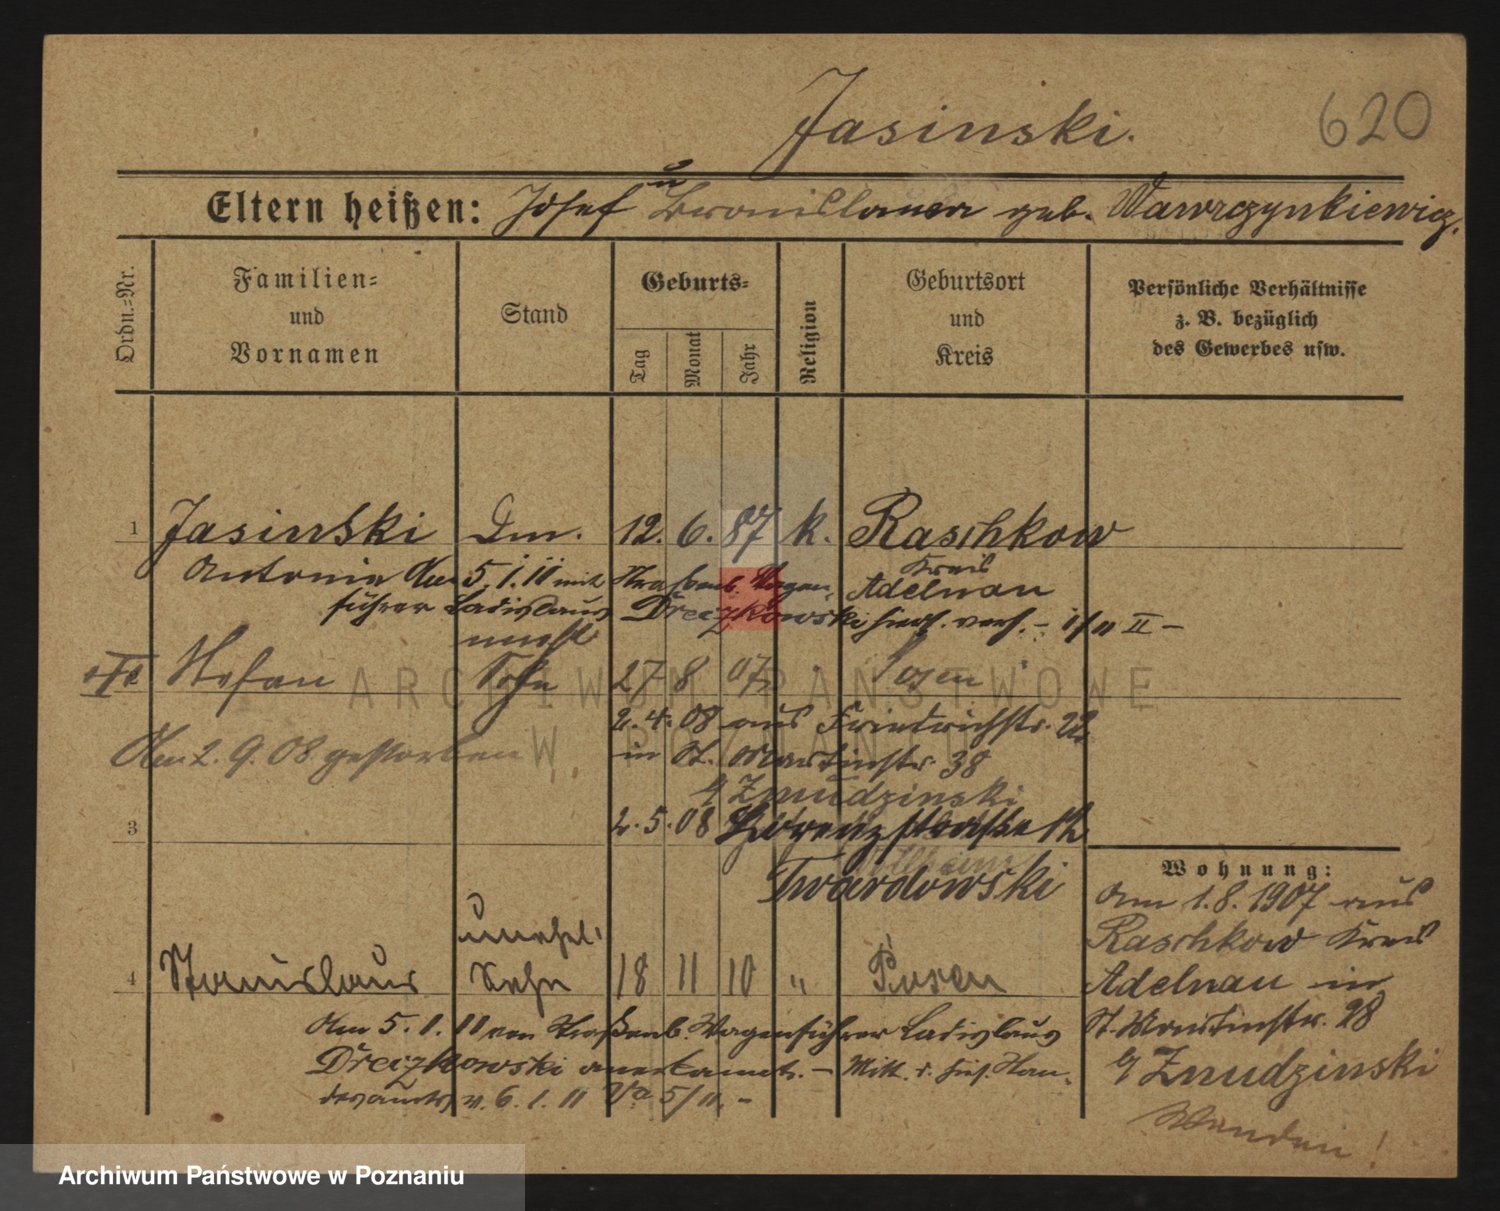 Jasinski.
620
Eltern heißen: Josef u Bronislawa geb. Wawrzynkiewicz.
Ordn.-Nr.
Familien-
und
Vornamen
Stand
Geburts-
Tag
Monat
Jahr
Religion
Geburtsort
und
Kreis
Persönliche Verhältnisse
z. B. bezüglich
des Gewerbes usw.
1 Jasinski Dm. 12. 6. 87 k. Raschkow
Kreis
Antonie Am 5.1.11 mit Straßenb. Wagen- Adelnau
führer Ladislaus Dreczkowski hies. verh. - 1/11 II -
unehl
Stefan Sohn 27 8 07 " Posen
2.4.08 aus Friedrichstr. 22
Am 2.9.08 gestorben in St. Martinstr. 38
b/ Zmudzinski
3 2.5.08 Lorenzstraße 12
Twardowski
Wohnung:
Am 1.8.1907 aus
Raschkow Kreis
Adelnau in
St. Martinstr. 28
b/ Zmudzinski
Wenden!
unehel.
4 Stanislaus Sohn 18 11 10 " Posen
Am 5.1.11 von Straßenb. Wagenführer Ladislaus
Dreczkowski anerkannt. - Mitt. d. hies. Stan-
desamts v. 6.1.11 Va 5/11. -
ARCHIWUM PAŃSTWOWE
W POZNANIU
Archiwum Państwowe w Poznaniu